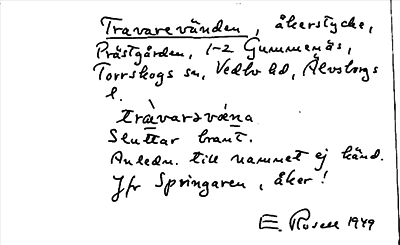 Travarevänden, åkerstycke,
Prästgården, 1-2 Gummenäs,
Torrskogs sn, Vedbo hd, Älvsborgs
l.
tràvarəvä́na
Sluttar brant.
Anledn. till namnet ej känd.
Jfr Springaren, åker!
E. Rosell 1949